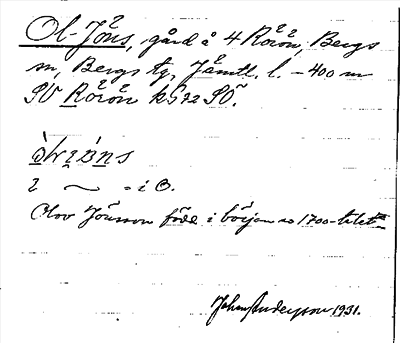 Ol-Jöns, gård å 4 Rörön, Bergs
sn, Bergs tg, Jämtl. l. – 400 m
SV Rörön kS 72 SÖ.
2 ~ - i B.
Olov Jönsson född i början av 1700-talet
Johan Anderson 1931.